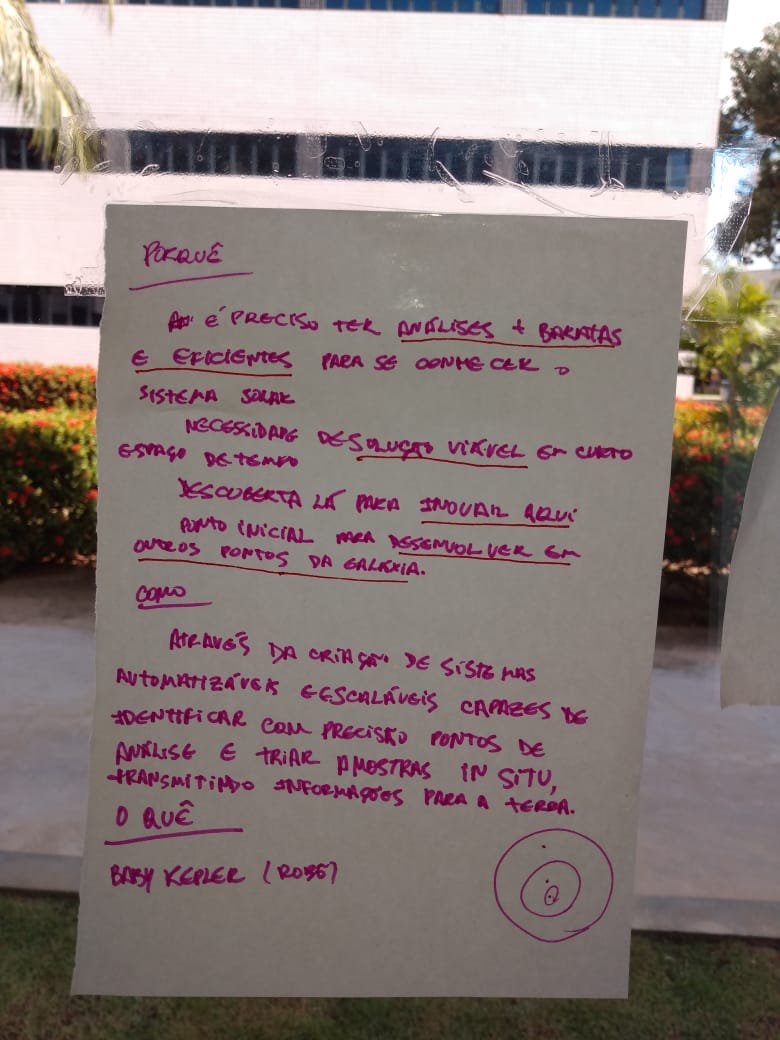 PORQUÊ
É PRECISO TER ANÁLISES + BARATAS
E EFICIENTES PARA SE CONHECER O
SISTEMA SOLAR
NECESSIDADE DE SOLUÇÃO VIÁVEL EM CURTO
ESPAÇO DE TEMPO
DESCOBERTA LÁ PARA INOVAR AQUI
PONTO INICIAL PARA DESENVOLVER EM
OUTROS PONTOS DA GALÁXIA.
COMO
ATRAVÉS DA CRIAÇÃO DE SISTEMAS
AUTOMATIZÁVEIS E ESCALÁVEIS CAPAZES DE
IDENTIFICAR COM PRECISÃO PONTOS DE
ANÁLISE E TRIAR AMOSTRAS IN SITU,
TRANSMITINDO INFORMAÇÕES PARA A TERRA.
O QUÊ
BABY KEPLER